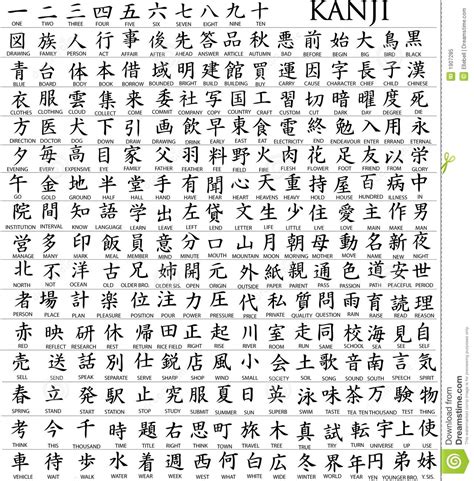 一 二 三 四 五 六 七 八 九 十 KANJI
ONE TWO THREE FOUR FIVE SIX SEVEN EIGHT NINE TEN
図 族 人 行 事 後 先 答 品 秋 悪 前 始 大 鳥 黒
DRAWING FAMILY PERSON ACT AFFAIR BEHIND AHEAD ANSWER ARTICLE AUTUMN BAD BEFORE BEGIN BIG BIRD BLACK
青 台 体 本 借 域 明 建 館 買 運 因 字 長 子 漢
BLUE BOARD BODY BOOK BORROW BOUNDED BRIGHT BUILD BUILDING BUY CARRY CAUSE CHARACTER CHIEF CHILD CHINESE
衣 服 雲 集 来 国 工 習 切 暗 曜 度 死
CLOTHES CLOTHING CLOUD COLLECT COME COPY COUNTRY CRAFT CUT DARK DAY DEGREE DIE
方 医 犬 下 引 画 飲 早 食 電 終 勉 入 用 永
DIRECTION DOCTOR DOG DOWN DRAW DRAWING DRINK EARLY EAT ELECTRICITY END ENDEAVOUR ENTER ERRAND ETERNAL
夕 毎 高 目 家 父 羽 料 野 火 花 足 友 以 栄
EVENING EVERY EYE FAMILY FATHER FEATHER FEE FIELD FIRE FLOWER FOOT FRIEND FROM GLORY
午 金 地 半 堂 手 有 聞 心 天 重 持 屋 百 病 中
GO GOLD GROUND HALF HALL HAND HAVE HEAR HEART HEAVEN HEAVY HOLD HOUSE HUNDRED ILLNESS IN
院 間 知 語 学 出 左 貸 文 生 少 住 愛 主 作 男
INSTITUTION INTERVAL KNOW LANGUAGE LEARN LEAVE LEFT LEND LETTER LIFE LITTLE LIVE LOVE MAIN MAKE MAN
営 多 印 飯 員 意 分 口 月 山 朝 母 動 名 新 夜
MANAGE MANY MARK MEAL MEMBER MIND MINUTE MOUTH MOON MOUNTAIN MORNING MOTHER MOVE NAME NEW NIGHT
北 不 洋 古 兄 姉 開 元 外 自 紙 親 通 色 道 安 世
NORTH NOT OCEAN OLD OLDER BRO. OLDER SIS. OPEN ORIGIN OUTSIDE PAPER PARENT PASS PASSION PATH PEACEFUL
者 場 計 楽 位 注 力 圧 代 私 質 問 雨 育 読 理
PERSON PLACE PLAN PLEASURE POSITION POWER PRESSURE PRICE PRIVATE QUALITY QUESTION RAIN RAISE READ REASON
赤 映 研 休 帰 田 正 右 起 川 室 走 同 校 海 見 自
RED REFLECT RESEARCH REST RETURN RICE FIELD RIGHT RIGHT RISE RIVER ROOM RUN SAME SCHOOL SEA SEE SELF
売 送 話 別 仕 店 風 小 会 土 歌 音 南 言 気
SELL SEND SPEAK SEPARATE SERVE SHARP SHOP SMALL SOCIETY SOIL SONG SOUND SOUTH SPEECH SPIRIT
春 立 発 駅 止 究 服 夏 日 東 試 味 茶 万 験 物
SPRING STAND START STATION STOP STUDY SUMMER SUN SUPERB SWIM TASTE TEA TEN THOUSAND TEST THING
考 今 千 時 題 右 思 町 旅 木 真 試 転 宇 上 使
THINK THIS THOUSAND TIME TITLE RIGHT THINK TOWN TRAVEL TREE TRUE TRY TURN UNIVERSE UP USE
車 待 歩 水 着 週 西 何 白 広 冬 界 年 円 弟 妹
VEHICLE WAIT WALK WATER WEAR WEEK WEST WHAT WHITE WIDE WINTER WORLD YEAR YEN YOUNGER BRO.
Download from
Dreamstime.com